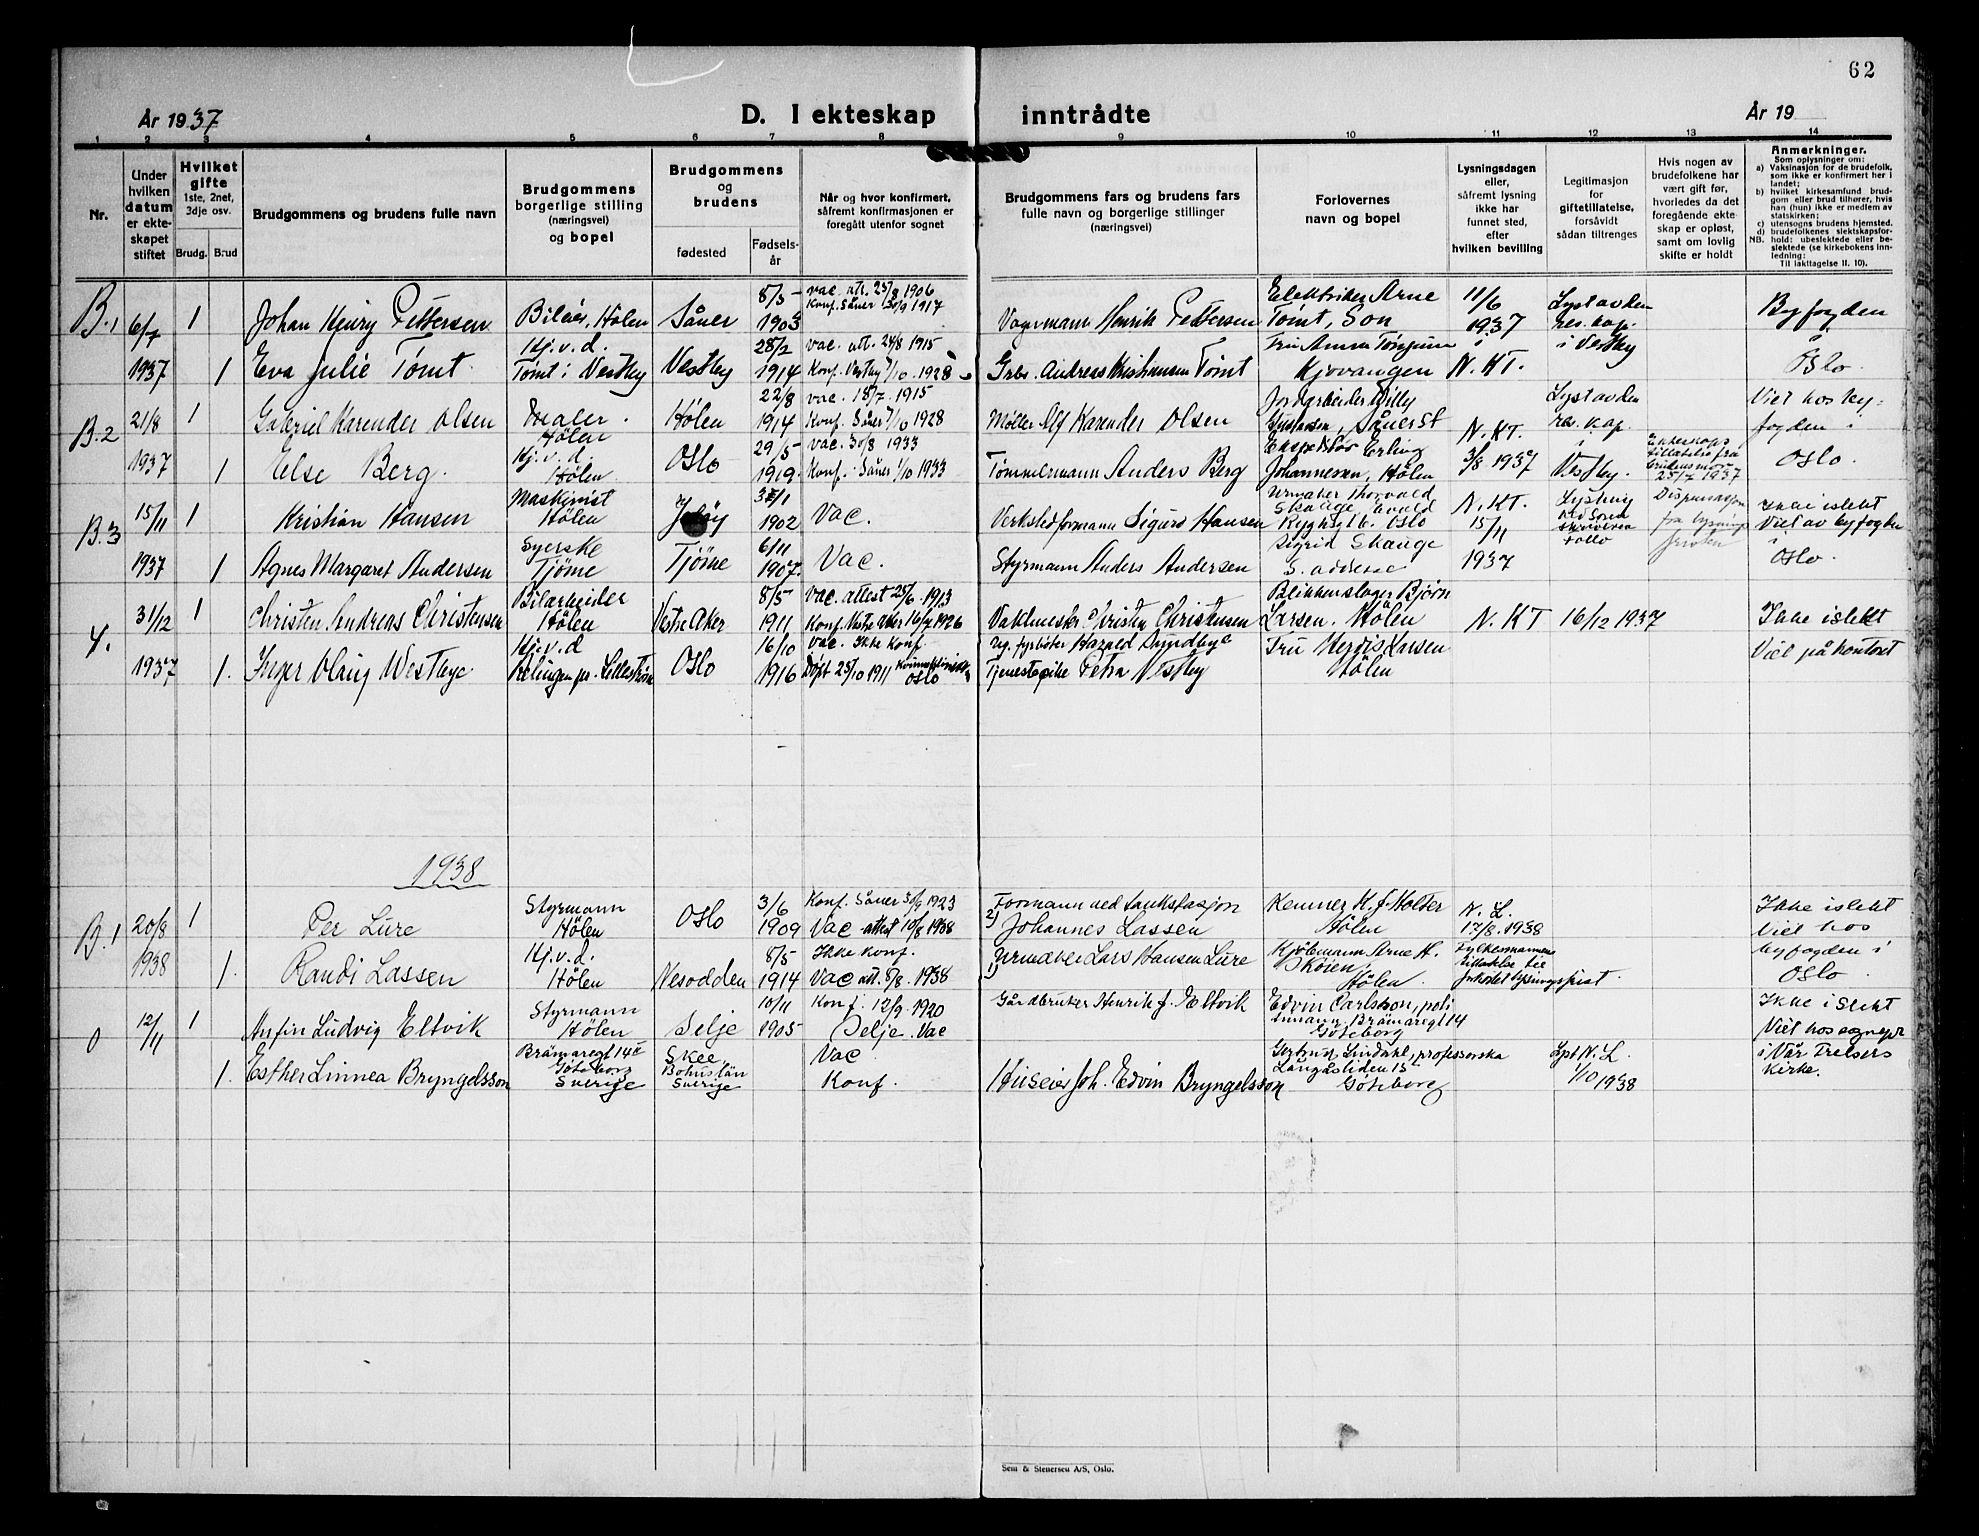 62
År 1937
D. I ekteskap inntrådte
År 19
1 2 3 4 5 6 7 8 9 10 11 12 13 14
Nr.
Under hvilken datum er ekteskapet stiftet
Hvilket gifte 1ste, 2net, 3dje osv.
Brudg. Brud
Brudgommens og brudens fulle navn
Brudgommens borgerlige stilling (næringsvei) og bopel
Brudgommens og brudens
fødested Fødselsår
Når og hvor konfirmert, såfremt konfirmasjonen er foregått utenfor sognet
Brudgommens fars og brudens fars fulle navn og borgerlige stillinger (næringsvei)
Forlovernes navn og bopel
Lysningsdagen eller, såfremt lysning ikke har funnet sted, efter hvilken bevilling
Legitimasjon for giftetillatelse, forsåvidt sådan tiltrenges
Hvis nogen av brudefolkene har vært gift før, hvorledes da det foregående ekteskap er opløst, samt om lovlig skifte er holdt
Anmerkninger.
Som oplysninger om:
a) Vaksinasjon for de brudefolk, som ikke er konfirmert her i landet;
b) hvilket kirkesamfund brudgom eller brud tilhører, hvis han (hun) ikke er medlem av statskirken;
c) utensogns brudens hjemsted.
d) brudefolkenes slektskapsforhold: ubeslektede eller beslektede (se kirkebokens innledning:
NB. Til iakttagelse II. 10).
B.1 6/7 1 Johan Henry Pettersen Bileier, Hølen Såner 8/5 1903 vac. att. 25/8 1906 Konf. Såner 30/9 1917 Vognmann Henrik Pettersen Elektriker Arne Tømt, Son 11/6 1937 Lyst av den res. kap. i Vestby Byfogden i Oslo.
1937 1 Eva Julie Tømt. Hj.v.d. Tømt i Vestby Vestby 28/2 1914 vac. att. 24/8 1915 Konf. Vestby 7/10 1928 Grbr. Andreas Kristiansen Tømt Fru Anna Kjovangen N. KT.
B.2 21/8 1 Gabriel Karender Olsen Maler. Hølen Hølen 22/8 1914 vac. 18/7 1915 Konf. Såner 7/10 1928 Møller Alf Karender Olsen Jordarbeider Willy Gustavsen, Såner St N. KT. Lyst av den res. kap. i Vestby. Viet hos byfogden i Oslo
1937 1 Else Berg. Hj.v.d. Hølen Oslo 29/5 1919 vac. 30/8 1933 Konf. Såner 1/10 1933 Tømmermann Anders Berg Ekspeditør Erling Johannesen, Hølen 3/8 1937 Ekteskaps tillatelse fra brudens mor 25/7 1937
B.3 15/11 1 Kristian Hansen Maskinist Hølen Jeløy 31/1 1902 Vac. Verkstedformann Sigurd Hansen Urmaker Thorvald Skauge, Oslo N. KT. 15/11 Lysning Dispensasjon fra lysnings fristen Ikke i slekt Viet av byfogden i Oslo.
1937 1 Agnes Margaret Andersen Syerske Tjøme Tjøme 6/11 1907. Vac. Styrmann Anders Andersen Sigrid Skauge S. adresse 1937
4. 31/12 1 Christen Andreas Christensen Bilarbeider Hølen Vestre Aker 8/5 1911 Vac. attest 25/6 1913 Konf. Vestre Aker 1926 Vaktmester Christen Christensen Blikkenslager Bjørn Larsen. Hølen N. KT 16/12 1937 Ikke i slekt
1937 1. Inger Olaug Westbye Hj.v.d Relingen pr. Lillestrøm Oslo 16/10 1916 Vac. Ikke Konf. Døpt 25/10 1911 Oslo Ug. fyrbøter Harald Sundbye Tjenestepike Petra Vestby Fru Herdis Larsen Hølen Viet på kontoret
1938
B.1 20/8 1 Per Lure Styrmann Hølen Oslo 3/6 1909 Konf. Såner 30/9 1923 Vac attest 10/8 1938 Formann ved tankstasjon 2) Johannes Lassen Kemner H. J. Holter Hølen N. L. 17/8. 1938 Ikke i slekt Viet hos byfogden i Oslo
1938 1. Randi Lassen Hj.v.d. Hølen Nesodden 8/5 1914 Ikke Konf. Vac att. 8/8. 1938 1) Urmaker Lars Hansen Lure Kjølemann Arne H. Skoien, Hølen. Fylkesmannens tillatelse til forkortet lysningsfrist.
0 12/11 1 Anfin Ludvig Eltvik Styrmann Hølen Selje 10/11 1905 Konf. 12/9. 1920 Selje. Vac Gårdbruker Henrik J. Eltvik Edvin Carlsson, Brämaregt 14 Göteborg Ikke i slekt Viet hos sognepr i Vår Frelsers Kirke.
1. Esther Linnea Bryngelsson Brämaregt 14 c Göteborg Sverige Skee, Bohuslän Sverige Vac Konf. Huseier Joh. Edvin Bryngelsson Gertrud Lindahl, professorska Långåsliden 15 Göteborg Lyst N. L. 1/10 1938
Sem & Stenersen A/S, Oslo.